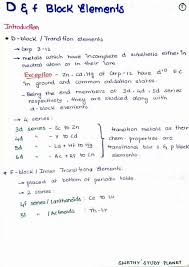 D & f Block Elements
Introduction
* D-block / Transition elements
→ Grp 3-12
→ metals which have incomplete d subshell either in
neutral atom or in their ions
Exception - Zn, Cd, Hg of Grp-12 have d¹⁰ e.c
in ground and common oxidation states
• Being the end members of 3d, 4d, 5d series
respectively, they are studied along with
d-block elements
→ 4 series:
3d series - Sc to Zn
4d - Y to Cd
5d - La + Hf to Hg
6d - Ac + Rf to Cn
transition metals as their
chem. properties are
transitional b/w s & p
block elements
* F-block / Inner Transitional Elements:
→ placed at bottom of periodic table.
→ 2 series:
4f series / Lanthanoids : Ce to Lu
5f / Actinoids : Th-Lr
STUDY PLANET